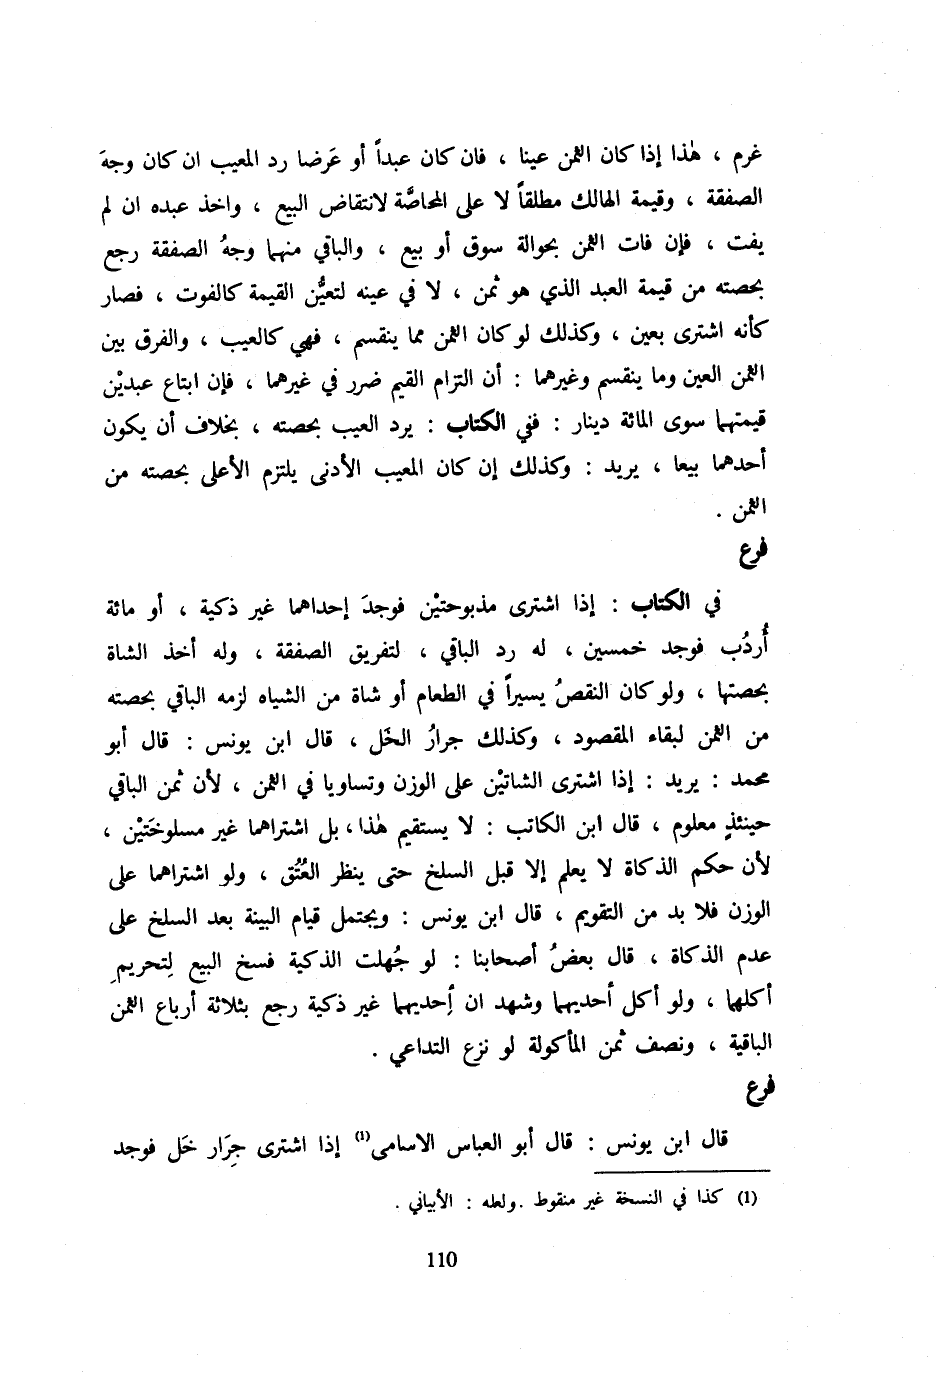 غرم ، هٰذا إذا كان الثمن عينا ، فان كان عبداً أو عَرضا رد المعيب ان كان وجهَ
الصفقة ، وقيمة الهالك مطلقاً لا على المحاصَّة لانتقاض البيع ، واخذ عبده ان لم
يفت ، فإن فات الثمن بحوالة سوق أو بيع ، والباقي منهما وجهُ الصفقة رجع
بحصته من قيمة العبد الذي هو ثمن ، لا في عينه لتعيُّن القيمة كالفوت ، فصار
كأنه اشترى بعين ، وكذلك لو كان الثمن مما ينقسم ، فهي كالعيب ، والفرق بين
الثمن العين وما ينقسم وغيرهما : أن التزام القيم ضرر في غيرهما ، فإن ابتاع عبديْن
قيمتهما سوى المائة دينار : ففي الكتاب : يرد العيب بحصته ، بخلاف أن يكون
أحدهما بيعا ، يريد : وكذلك إن كان المعيب الأدنى يلتزم الأعلى بحصته من
الثمن .
فرع
في الكتاب : إذا اشترى مذبوحتيْن فوجدَ إحداهما غير ذكية ، أو مائة
أُردُب فوجد خمسين ، له رد الباقي ، لتفريق الصفقة ، وله أخذ الشاة
بحصتها ، ولو كان النقصُ يسيراً في الطعام أو شاة من الشياه لزمه الباقي بحصته
من الثمن لبقاء المقصود ، وكذلك جرارُ الخَل ، قال ابن يونس : قال أبو
محمد : يريد : إذا اشترى الشاتيْن على الوزن وتساويا في الثمن ، لأن ثمن الباقي
حينئذٍ معلوم ، قال ابن الكاتب : لا يستقيم هٰذا ، بل اشتراهما غير مسلوخَتَيْن ،
لأن حكم الذكاة لا يعلم إلا قبل السلخ حتى ينظر العُنُق ، ولو اشتراهما على
الوزن فلا بد من التقويم ، قال ابن يونس : ويحتمل قيام البينة بعد السلخ على
عدم الذكاة ، قال بعضُ أصحابنا : لو جُهلت الذكية فسخ البيع لِتحريمِ
أكلها ، ولو أكل أحديهما وشهد ان أحديهما غير ذكية رجع بثلاثة أرباع الثمن
الباقية ، ونصف ثمن المأكولة لو نزع التداعي .
فرع
قال ابن يونس : قال أبو العباس الاسامى(1) إذا اشترى جِرَار خَل فوجد
(1) كذا في النسخة غير منقوط . ولعله : الأبياني .
110